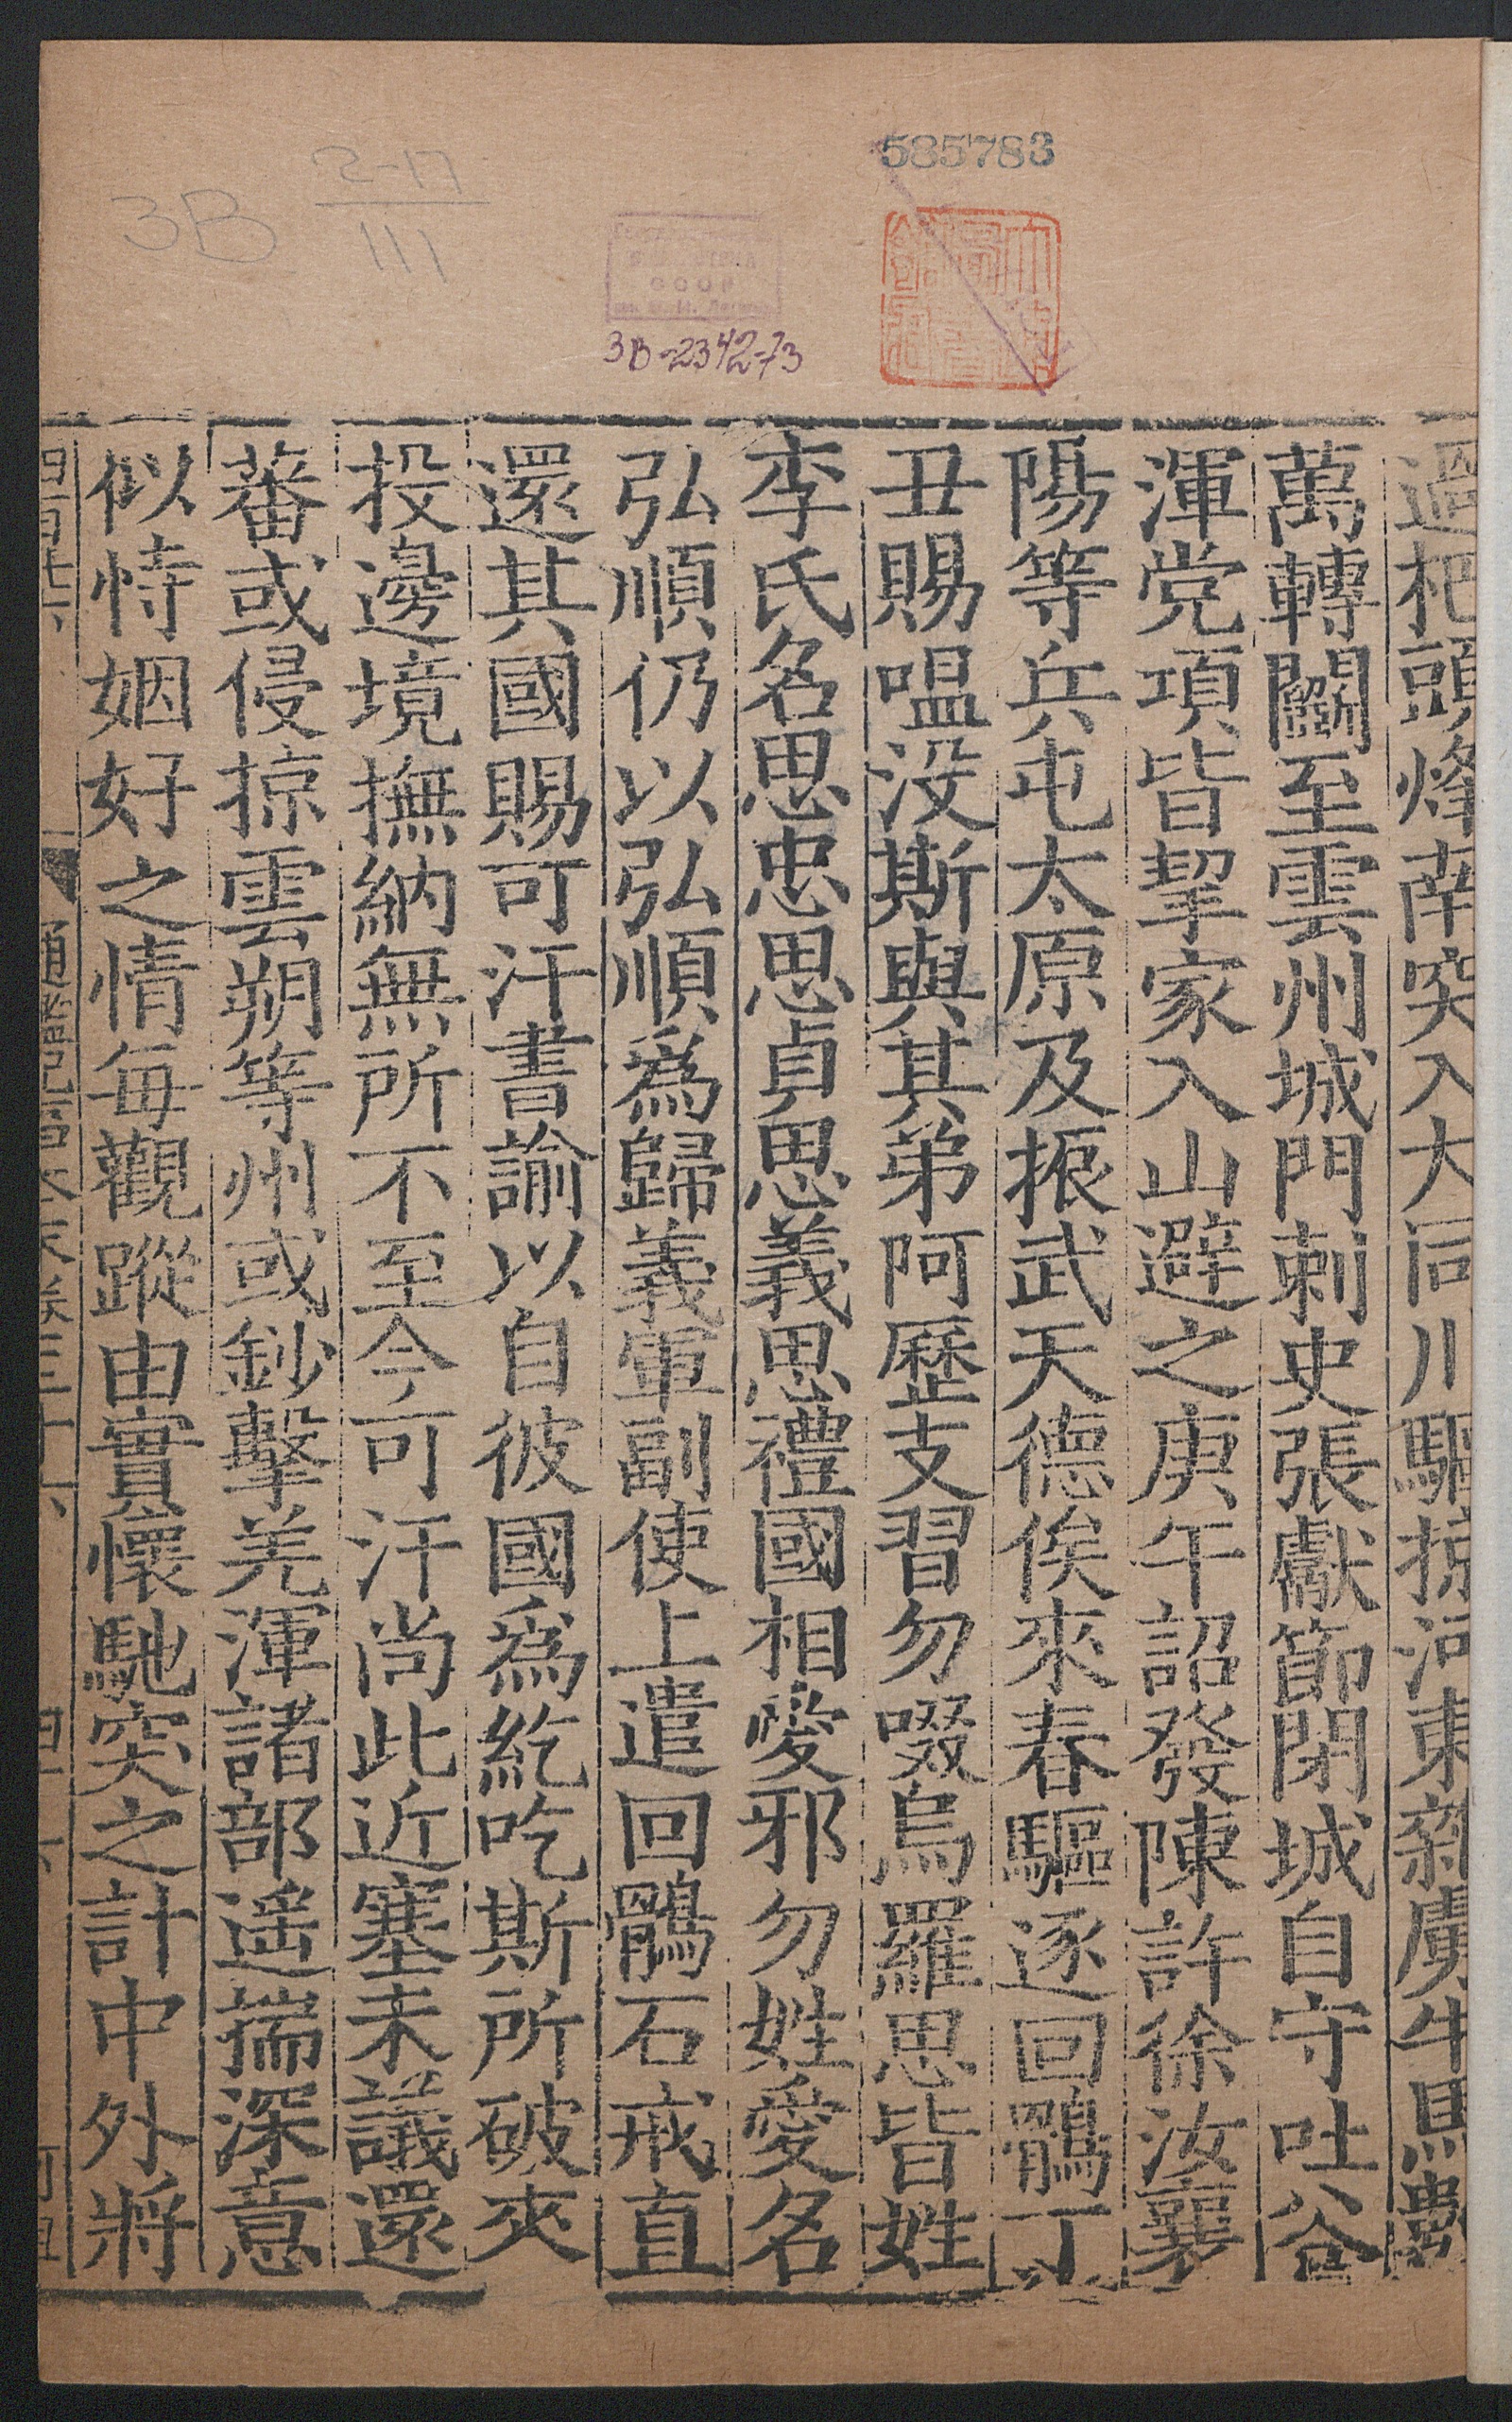 585783
2-17
3B 111
СССР
3B-2342-73
過杷頭烽南突入大同川驅掠河東雜虜牛馬數
萬轉鬬至雲州城門刺史張獻節閉城自守吐谷
渾党項皆挈家入山避之庚午詔發陳許徐汝襄
陽等兵屯太原及振武天德俟來春驅逐回鶻丁
丑賜嗢没斯與其弟阿歷支習勿啜烏羅思皆姓
李氏名思忠思貞思義思禮國相愛邪勿姓愛名
弘順仍以弘順爲歸義軍副使上遣回鶻石戒直
還其國賜可汗書諭以自彼國爲紇吃斯所破來
投邊境撫納無所不至今可汗尚此近塞未議還
蕃或侵掠雲朔等州或鈔擊羌渾諸部遥揣深意
似恃姻好之情每觀蹤由實懷馳突之計中外將